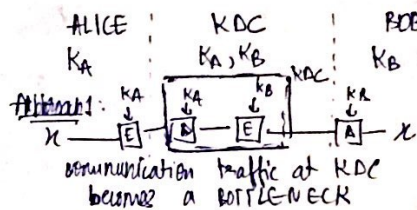 ALICE KDC BOB
K_A K_A, K_B K_B
KDC
K_A K_A K_B K_B
x E E x
communication traffic at KDC
becomes a BOTTLENECK